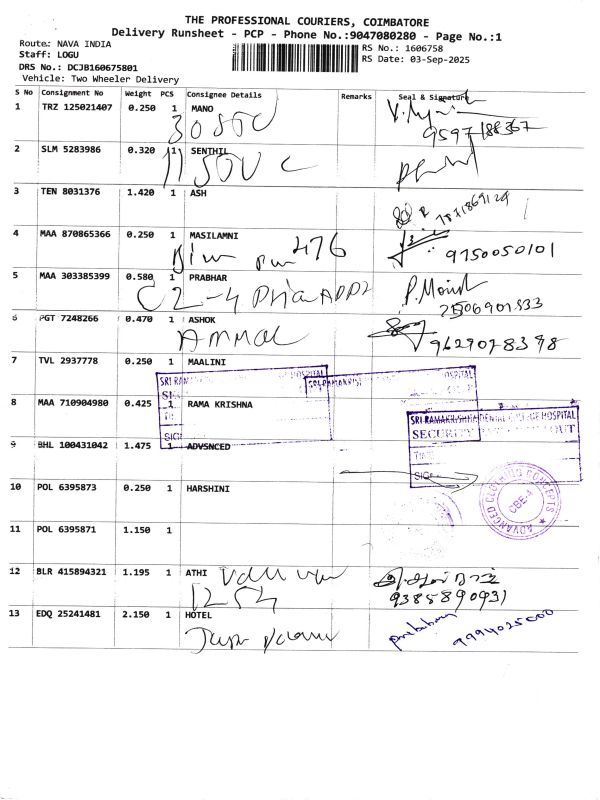 THE PROFESSIONAL COURIERS, COIMBATORE
Delivery Runsheet - PCP - Phone No.:9047080280 - Page No.:1
Route: NAVA INDIA
Staff: LOGU
DRS No.: DCJB160675801
Vehicle: Two Wheeler Delivery
RS No.: 1606758
RS Date: 03-Sep-2025
S No Consignment No Weight PCS Consignee Details Remarks Seal & Signature
1 TRZ 125021407 0.250 1 MANO
9597188367
2 SLM 5283986 0.320 1 SENTHIL
3 TEN 8031376 1.420 1 ASH
4 MAA 870865366 0.250 1 MASILAMNI
476 9750050101
5 MAA 303385399 0.580 1 PRABHAR
6 PGT 7248266 0.470 1 ASHOK
AMMAL
7 TVL 2937778 0.250 1 MAALINI
SRI RAMAKRISHNA DENTAL COLLEGE HOSPITAL
SECURITY OUT
TIME
SIG
8 MAA 710904980 0.425 1 RAMA KRISHNA
9 BHL 100431042 1.475 1 ADVSNCED
10 POL 6395873 0.250 1 HARSHINI
ADVANCED CLOTHING CONCEPTS
CBE-4
11 POL 6395871 1.150 1
12 BLR 415894321 1.195 1 ATHI
1254 9385890931
13 EDQ 25241481 2.150 1 HOTEL